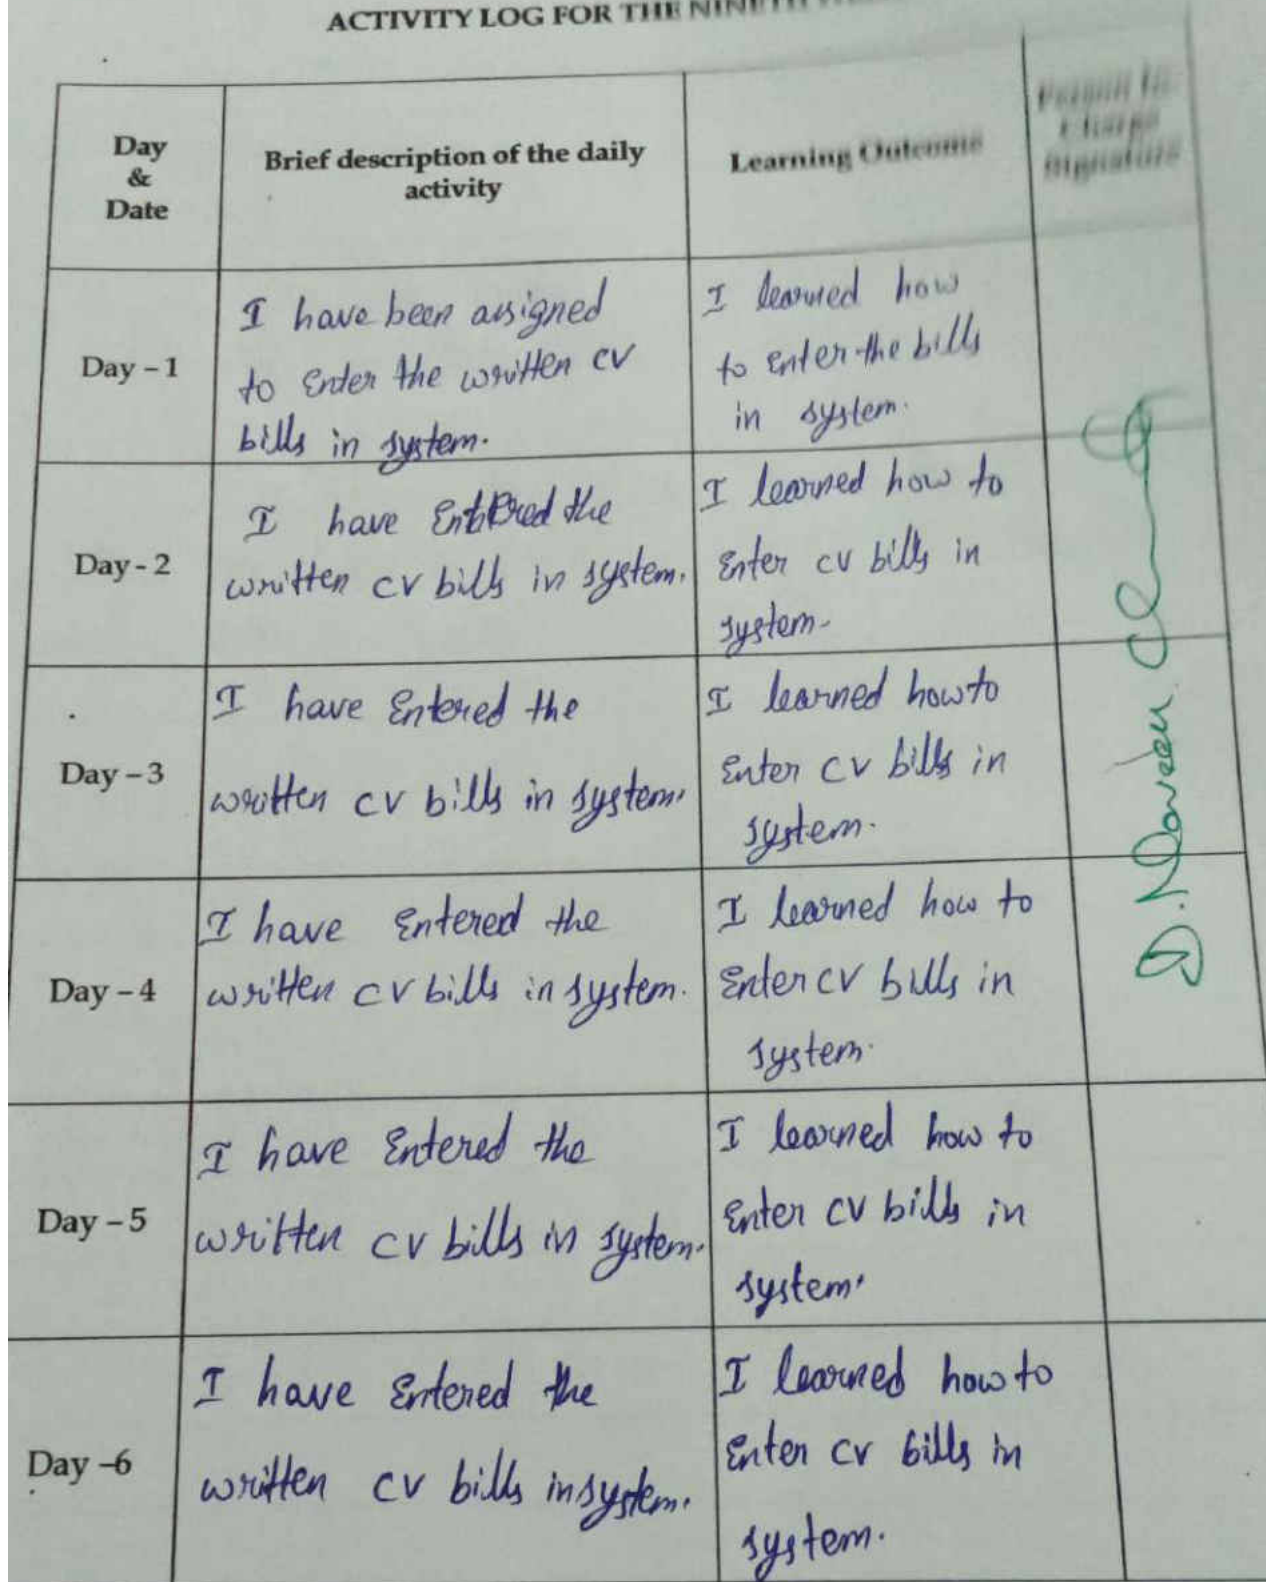 ACTIVITY LOG FOR THE NINETH
Day
&
Date
Brief description of the daily
activity
Learning Outcome
Person In
Charge
Signature
Day – 1
I have been assigned
to Enter the written CV
bills in system.
I learned how
to Enter the bills
in system.
Day - 2
I have Entered the
written CV bills in system.
I learned how to
Enter CV bills in
system.
Day – 3
I have Entered the
written CV bills in system.
I learned how to
Enter CV bills in
system.
Day – 4
I have Entered the
written CV bills in system.
I learned how to
Enter CV bills in
system.
Day – 5
I have Entered the
written CV bills in system.
I learned how to
Enter CV bills in
system.
Day –6
I have Entered the
written CV bills in system.
I learned how to
Enter CV bills in
system.
D. Naveen